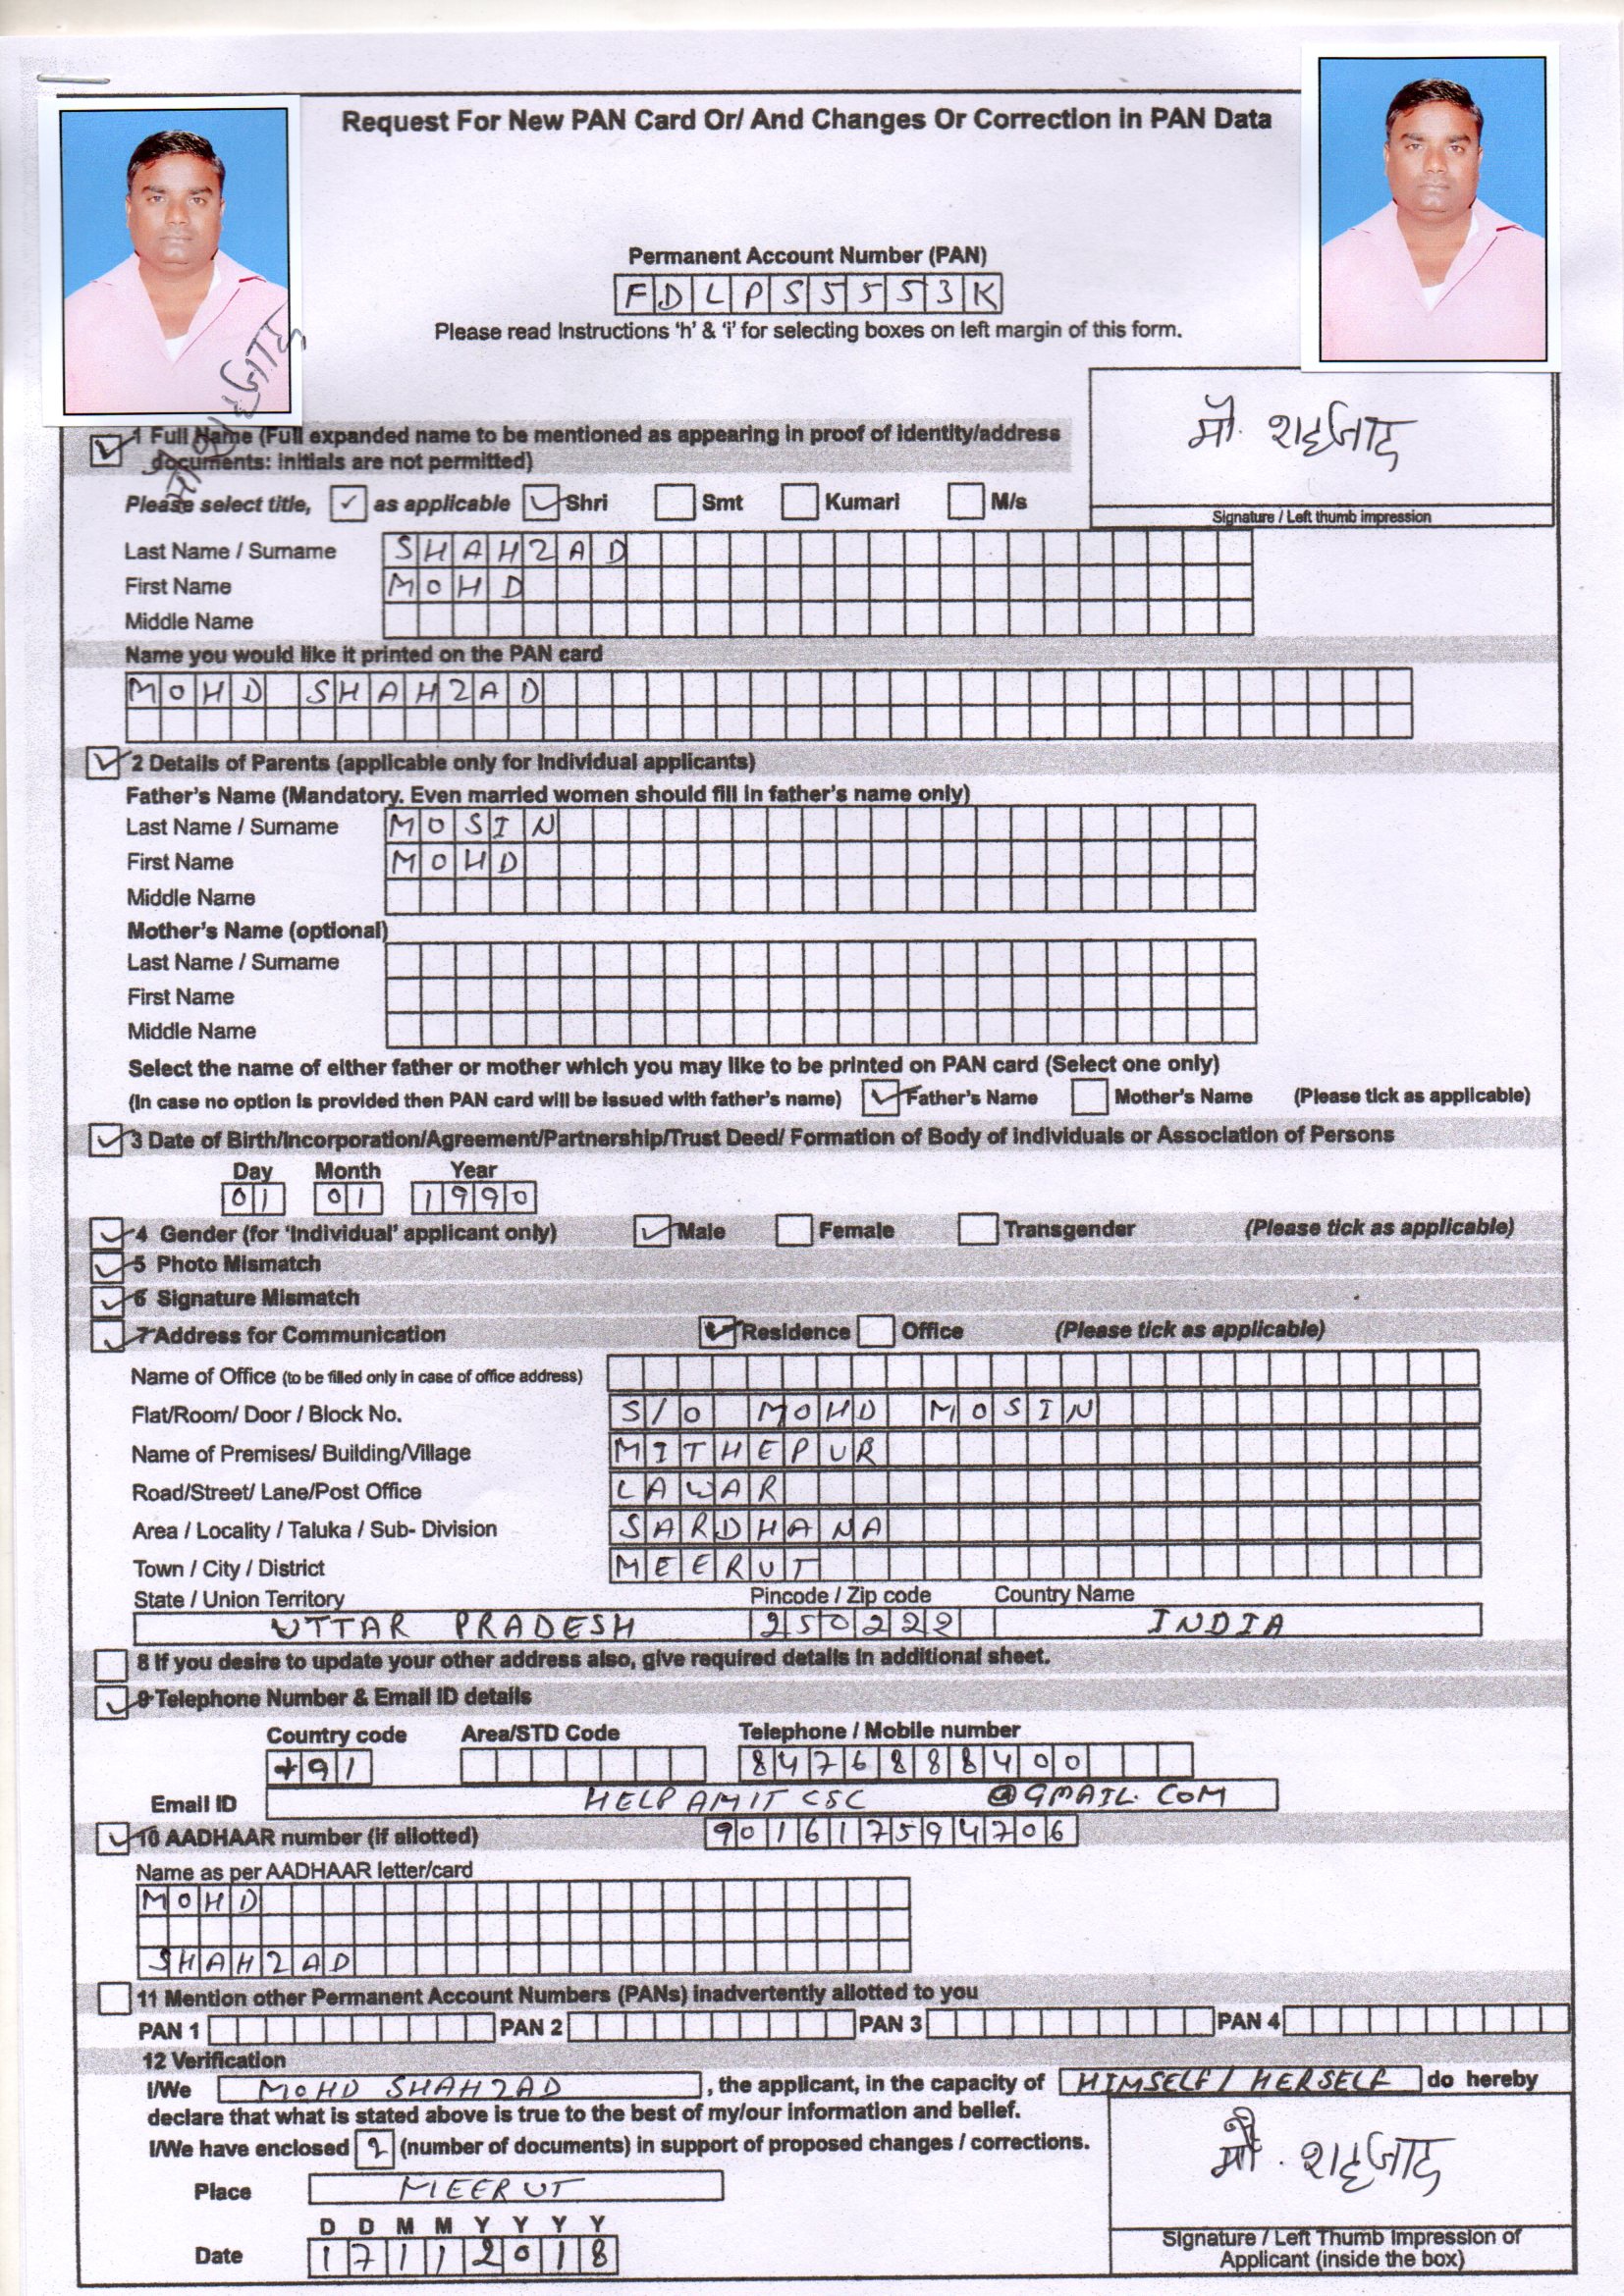 Request For New PAN Card Or/ And Changes Or Correction in PAN Data
Permanent Account Number (PAN)
FDLPS5553K
Please read Instructions 'h' & 'i' for selecting boxes on left margin of this form.
मौ. शहजाद
1 Full Name (Full expanded name to be mentioned as appearing in proof of identity/address
documents: initials are not permitted)
मौ. शहजाद
Please select title, ✓ as applicable ✓ Shri Smt Kumari M/s
Signature / Left thumb impression
Last Name / Surname SHAHZAD
First Name MOHD
Middle Name
Name you would like it printed on the PAN card
MOHD SHAHZAD
2 Details of Parents (applicable only for Individual applicants)
Father's Name (Mandatory. Even married women should fill in father's name only)
Last Name / Surname MOSIN
First Name MOHD
Middle Name
Mother's Name (optional)
Last Name / Surname
First Name
Middle Name
Select the name of either father or mother which you may like to be printed on PAN card (Select one only)
(In case no option is provided then PAN card will be issued with father's name) ✓ Father's Name Mother's Name (Please tick as applicable)
3 Date of Birth/Incorporation/Agreement/Partnership/Trust Deed/ Formation of Body of individuals or Association of Persons
Day Month Year
01 01 1990
4 Gender (for 'Individual' applicant only) ✓ Male Female Transgender (Please tick as applicable)
5 Photo Mismatch
6 Signature Mismatch
7 Address for Communication ✓ Residence Office (Please tick as applicable)
Name of Office (to be filled only in case of office address)
Flat/Room/ Door / Block No. S/O MOHD MOSIN
Name of Premises/ Building/Village MITHEPUR
Road/Street/ Lane/Post Office LAWAR
Area / Locality / Taluka / Sub- Division SARDHANA
Town / City / District MEERUT
State / Union Territory Pincode / Zip code Country Name
UTTAR PRADESH 250222 INDIA
8 If you desire to update your other address also, give required details in additional sheet.
9 Telephone Number & Email ID details
Country code Area/STD Code Telephone / Mobile number
+91 8476888400
Email ID HELPAMITCSC @GMAIL.COM
10 AADHAAR number (if allotted) 901617594706
Name as per AADHAAR letter/card
MOHD
SHAHZAD
11 Mention other Permanent Account Numbers (PANs) inadvertently allotted to you
PAN 1 PAN 2 PAN 3 PAN 4
12 Verification
I/We MOHD SHAHZAD , the applicant, in the capacity of HIMSELF/HERSELF do hereby
declare that what is stated above is true to the best of my/our information and belief.
I/We have enclosed 2 (number of documents) in support of proposed changes / corrections.
मौ. शहजाद
Place MEERUT
D D M M Y Y Y Y
Date 17112018
Signature / Left Thumb Impression of
Applicant (inside the box)